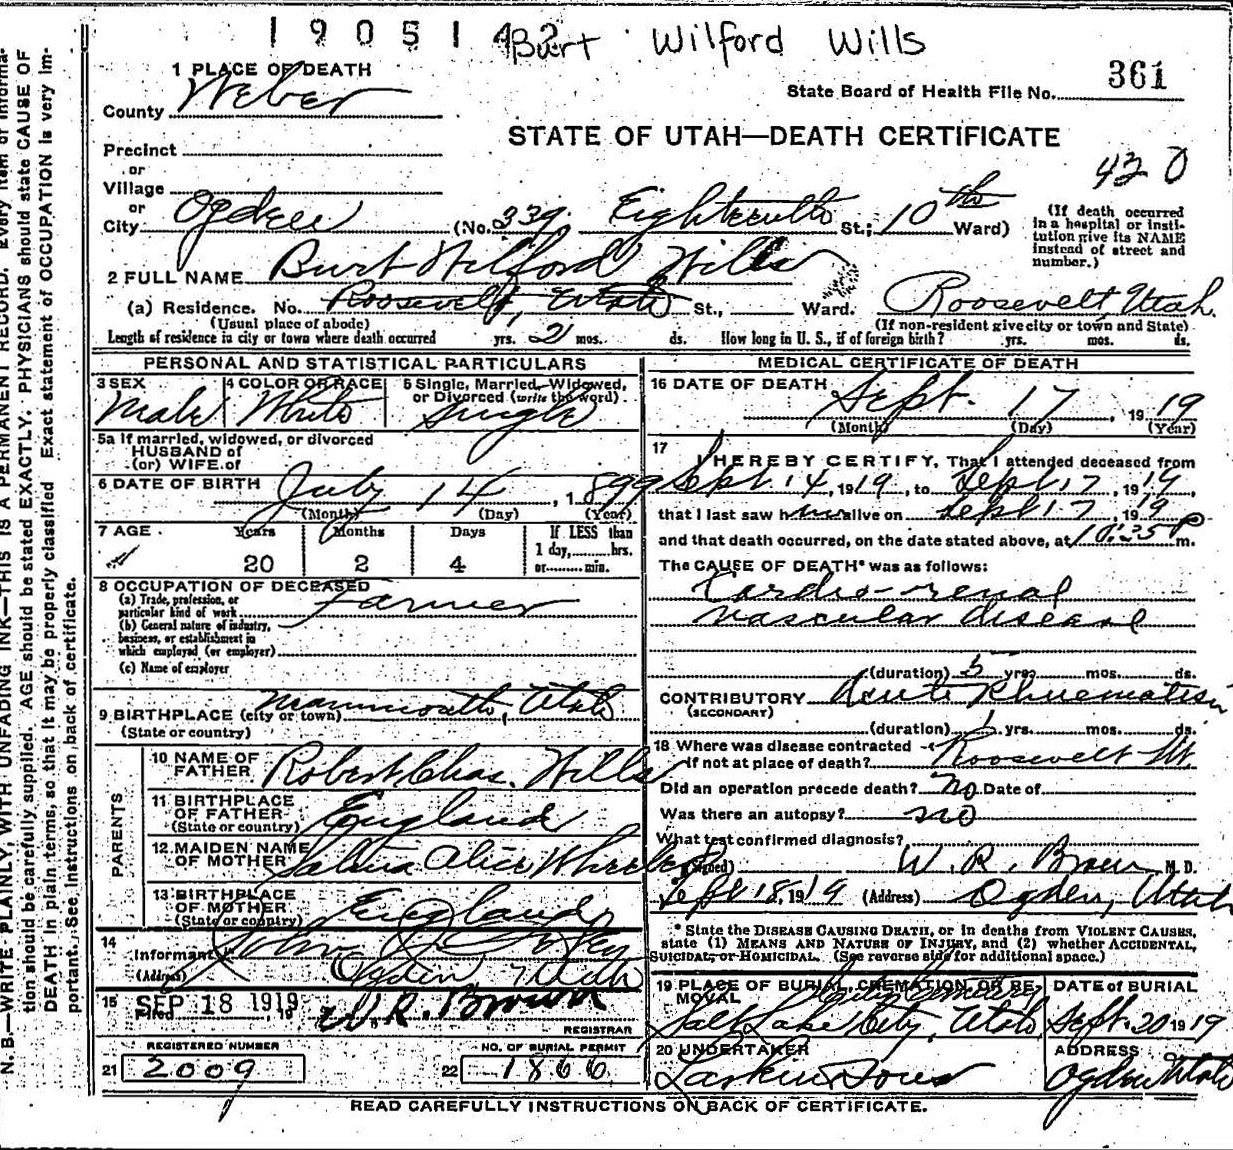 190514
Burt Wilford Wills
1 PLACE OF DEATH
County Weber
State Board of Health File No. 361
STATE OF UTAH—DEATH CERTIFICATE
Precinct
or
Village
or
420
City Ogden (No. 339 Eighteenth St.; 10th Ward)
(If death occurred in a hospital or institution give its NAME instead of street and number.)
2 FULL NAME Burt Wilford Wills
(a) Residence. No. Roosevelt, Utah St., Ward. Roosevelt, Utah.
(Usual place of abode) (If non-resident give city or town and State)
Length of residence in city or town where death occurred yrs. 2 mos. ds. How long in U. S., if of foreign birth? yrs. mos. ds.
PERSONAL AND STATISTICAL PARTICULARS
3 SEX Male
4 COLOR OR RACE White
5 Single, Married, Widowed, or Divorced (write the word) Single
5a If married, widowed, or divorced
HUSBAND of
(or) WIFE of
6 DATE OF BIRTH July 14, 1899
(Month) (Day) (Year)
7 AGE Years Months Days If LESS than
1 day, hrs.
or min.
20 2 4
8 OCCUPATION OF DECEASED
(a) Trade, profession, or
particular kind of work Farmer
(b) General nature of industry,
business, or establishment in
which employed (or employer)
(c) Name of employer
9 BIRTHPLACE (city or town) Mammouth, Utah
(State or country)
PARENTS
10 NAME OF FATHER Robert Chas. Wills
11 BIRTHPLACE OF FATHER England
(State or country)
12 MAIDEN NAME OF MOTHER Salina Alice Wheeler
13 BIRTHPLACE OF MOTHER England
(State or country)
14
Informant John
(Address) Ogden Utah
15 Filed SEP 18 1919 19 W.R. Brown
REGISTRAR
REGISTERED NUMBER
21 2009
NO. OF BURIAL PERMIT
22 1866
MEDICAL CERTIFICATE OF DEATH
16 DATE OF DEATH Sept. 17, 1919
(Month) (Day) (Year)
17 I HEREBY CERTIFY, That I attended deceased from
Sept. 14, 1919, to Sept 17, 1919,
that I last saw him alive on Sept 17, 1919
and that death occurred, on the date stated above, at 10:25 P m.
The CAUSE OF DEATH* was as follows:
Cardio-renal
vascular disease
(duration) 5 yrs. mos. ds.
CONTRIBUTORY Acute Rhuematism
(SECONDARY)
(duration) yrs. mos. ds.
18 Where was disease contracted
if not at place of death? Roosevelt Ut.
Did an operation precede death? No Date of
Was there an autopsy? no
What test confirmed diagnosis?
(Signed) W. R. Brown M. D.
Sept 18, 1919 (Address) Ogden, Utah
* State the DISEASE CAUSING DEATH, or in deaths from VIOLENT CAUSES,
state (1) MEANS AND NATURE OF INJURY, and (2) whether ACCIDENTAL,
SUICIDAL, or HOMICIDAL. (See reverse side for additional space.)
19 PLACE OF BURIAL, CREMATION, OR REMOVAL City Cemetery
Salt Lake City, Utah
DATE of BURIAL
Sept. 20 1919
20 UNDERTAKER
Larkin Sons
ADDRESS
Ogden Utah
READ CAREFULLY INSTRUCTIONS ON BACK OF CERTIFICATE.
N. B.—WRITE PLAINLY, WITH UNFADING INK—THIS IS A PERMANENT RECORD. Every item of informa-
tion should be carefully supplied. AGE should be stated EXACTLY. PHYSICIANS should state CAUSE OF
DEATH in plain terms, so that it may be properly classified. Exact statement of OCCUPATION is very im-
portant. See instructions on back of certificate.